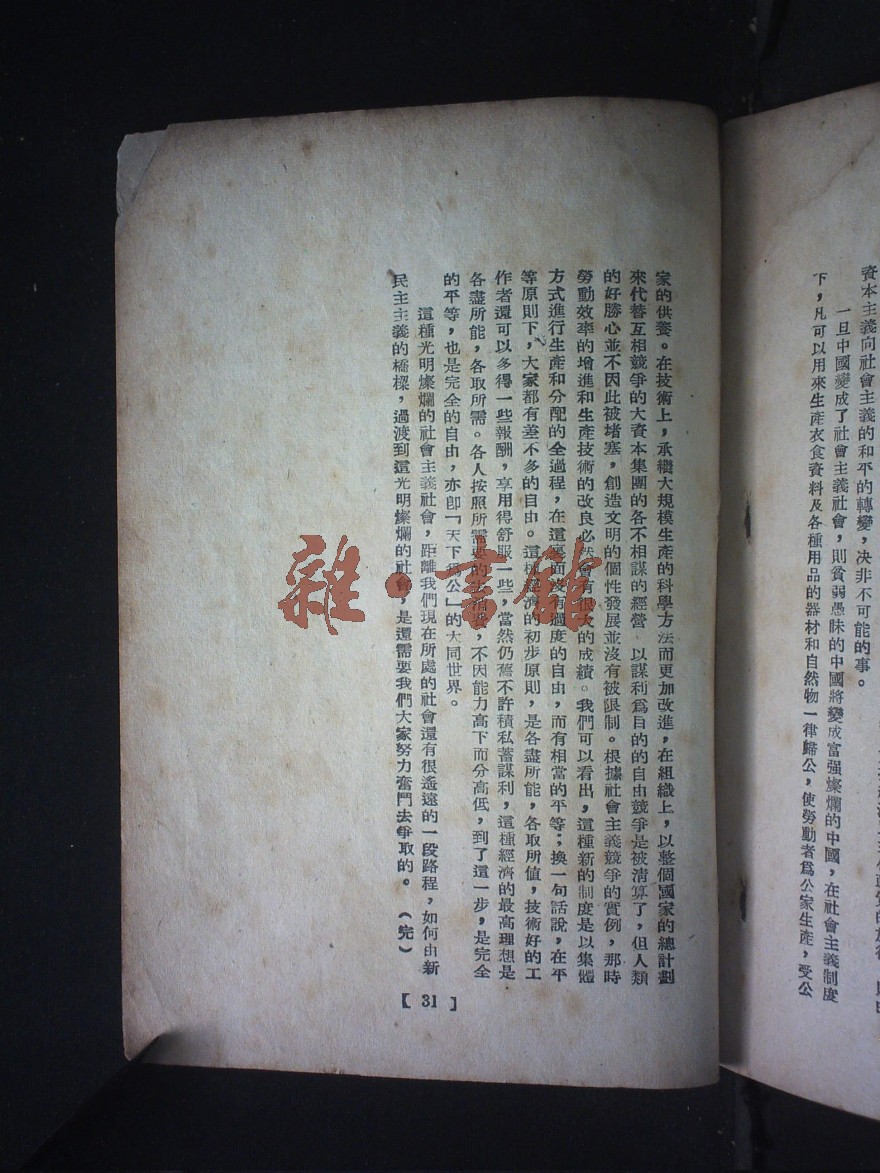 資本主義向社會主義的和平的轉變，决非不可能的事。
一旦中國變成了社會主義社會，則貧弱愚昧的中國將變成富强燦爛的中國，在社會主義制度
下，凡可以用來生產衣食資料及各種用品的器材和自然物一律歸公，使勞動者爲公家生產，受公
家的供養。在技術上，承繼大規模生產的科學方法而更加改進，在組織上，以整個國家的總計劃
來代替互相競爭的大資本集團的各不相謀的經營，以謀利爲目的的自由競爭是被清算了，但人類
的好勝心並不因此被堵塞，創造文明的個性發展並沒有被限制。根據社會主義競爭的實例，那時
勞動效率的增進和生產技術的改良必然會有很大的成績。我們可以看出，這種新的制度是以集體
方式進行生產和分配的全過程，在這裏面沒有過度的自由，而有相當的平等；換一句話說，在平
等原則下，大家都有差不多的自由。這種經濟的初步原則，是各盡所能，各取所值，技術好的工
作者還可以多得一些報酬，享用得舒服一些，當然仍舊不許積私蓄謀利，這種經濟的最高理想是
各盡所能，各取所需。各人按照所需要的去消費，不因能力高下而分高低，到了這一步，是完全
的平等，也是完全的自由，亦卽「天下爲公」的大同世界。
這種光明燦爛的社會主義社會，距離我們現在所處的社會還有很遙遠的一段路程，如何由新
民主主義的橋樑，過渡到這光明燦爛的社會，是還需要我們大家努力奮鬥去爭取的。（完）
【31】
雜·書館